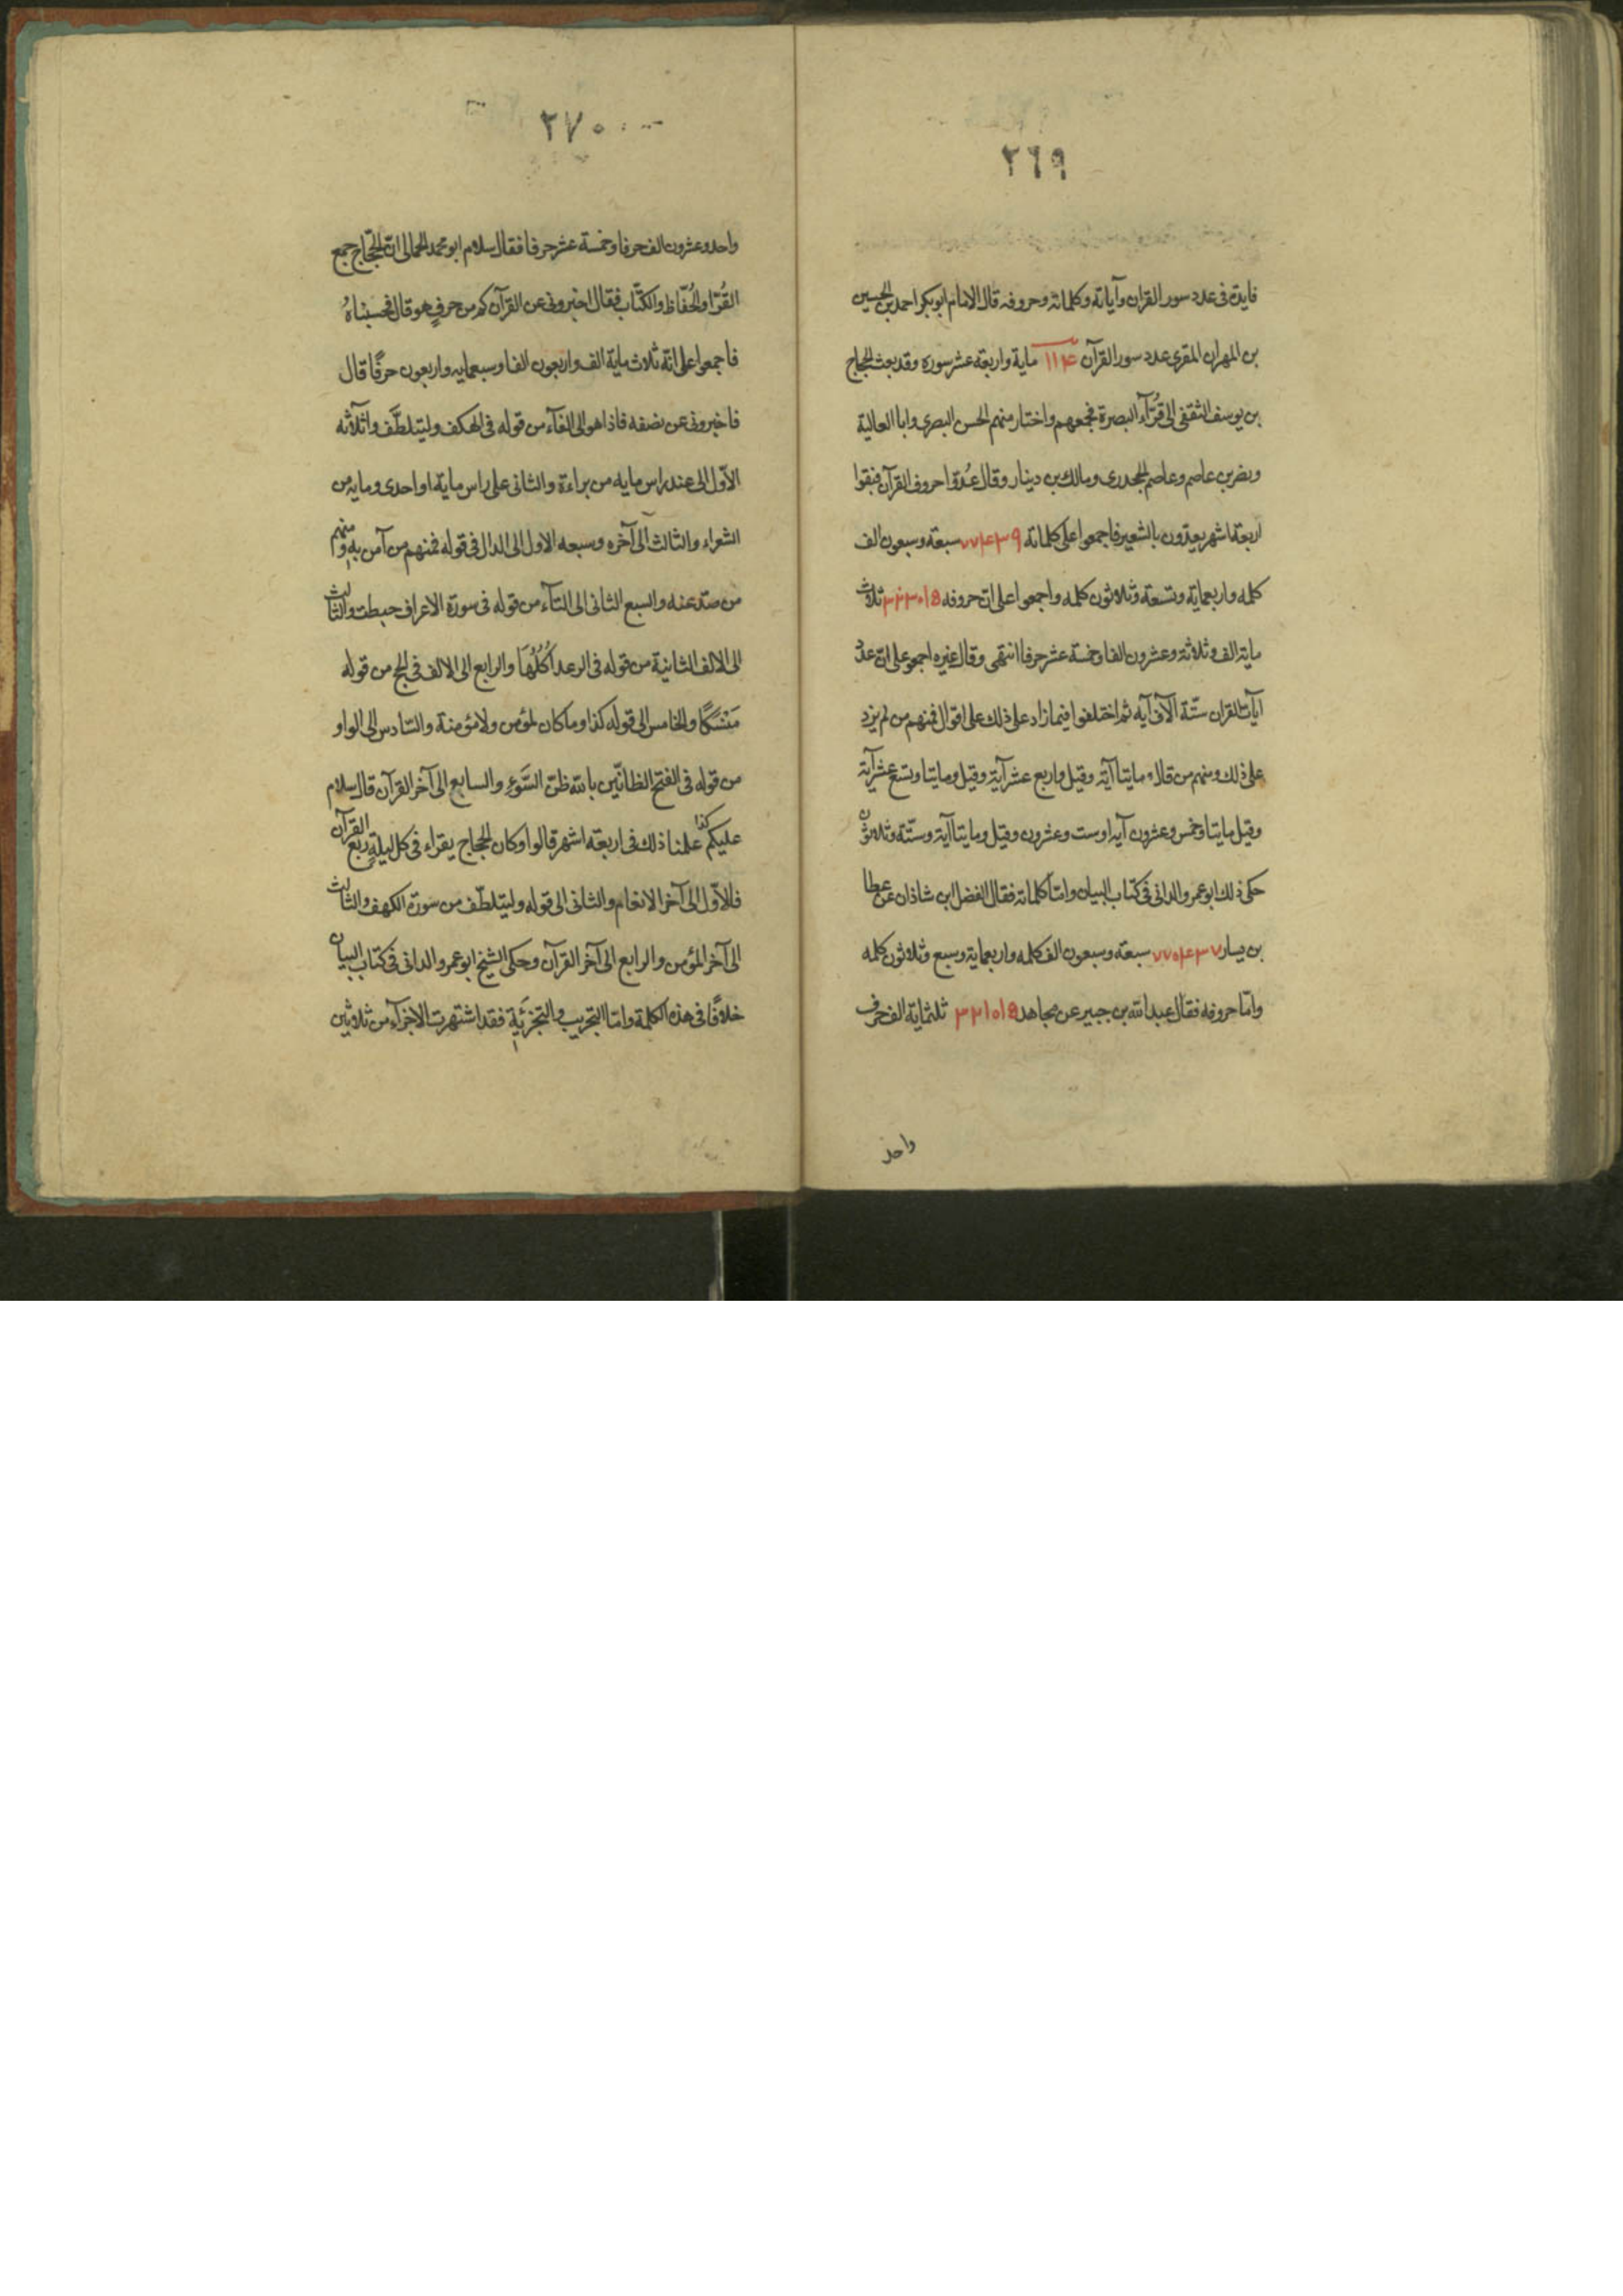 ٢٦٩
فايدة فى عدد سور القران وآياته وكلماته وحروفه قال الامام ابوبكر احمد بن الحسين
بن المهران المقرى عدد سور القرآن ١١۴ ماية واربعة عشر سورة وقد بعث الحجاج
بن يوسف الثقفى الى قُرّآء البصرة فجمعهم واختار منهم الحسن البصرى وابا العالية
ونضر بن عاصم وعاصم الجحدرى ومالك بن دينار وقال عُدّوا حروف القرآن فبقوا
اربعة اشهر يعدّون بالشعير فاجمعوا على كلماته ٧٧۴٣٩ سبعة وسبعون الف
كلمه واربعماية وتسعة وثلاثون كلمه واجمعوا على ان حروفه ٣٢٣٠١۵ ثلاث
ماية الف وثلاثة وعشرون الفا وخمسة عشر حرفا انتهى وقال غيره اجمعوا على ان عدد
آيات القران ستّة آلاف آيه ثم اختلفوا فيما زاد على ذلك على اقوال فمنهم من لم يزد
على ذلك ومنهم من قال ومايتا آية وقيل واربع عشر آية وقيل ومايتا وتسع عشر آية
وقيل مايتا وخمس وعشرون آيه او ست وعشرون وقيل ومايتا آية وستّة وثلاثون
حكى ذلك ابو عمرو الدانى فى كتاب البيان وامّا كلماته فقال الفضل ابن شاذان عن عطا
بن يسار ٧٧۴٣٧ سبعة وسبعون الف كلمه واربعماية وسبع وثلاثون كلمه
وامّا حروفه فقال عبد الله بن جبير عن مجاهد ٣٢١٠١۵ ثلثماية الف حرف
واحد
٢٧٠
واحد وعشرون الف حرفا وخمسة عشر حرفا فقال سلام ابو محمد الحمالى انّ الحجّاج جمع
القُرّا والحُفّاظ والكتّاب فقال اخبرونى عن القرآن كم من حرفٍ هو قال فحسبناهُ
فاجمعوا على انّه ثلاث ماية الف واربعون الفا وسبعمايه واربعون حرفًا قال
فاخبرونى عن نصفه فاذا هو الى الفآء من قوله فى الهكف وليتلطّف واثلاثه
الاوّل الى عند راس مايه من براءة والثانى على راس ماية او احدى ومايه من
الشعراء والثالث الى آخره وسبعه الاول الى الدال فى قوله فمنهم من آمن به ومنهم
من صدّ عنه والسبع الثانى الى التآء من قوله فى سورة الاعراف حبطت والثالث
الى الالف الثانية من قوله فى الرعد اُكُلُهَا والرابع الى الالف فى الحج من قوله
مَنْسَكًا والخامس الى قوله كذا وما كان لمؤمن ولا مؤمنة والسّادس الى الواو
من قوله فى الفتح الظانّين بالله ظنّ السَّوءِ والسابع الى آخر القرآن قال سلام
عليكم كذا علمنا ذلك فى اربعة اشهر قالوا وكان الحجاج يقراء فى كل ليلةٍ ربع القرآن
فالاوّل الى آخر الانعام والثانى الى قوله وليتلطّف من سورة الكهف والثالث
الى آخر المؤمن والرابع الى آخر القرآن وحكى الشيخ ابو عمرو الدانى فى كتاب البيان
خلافًا فى هذه الكلمة وامّا التحزيب والتجزئية فقد اشتهرت الاجزآء من ثلاثين